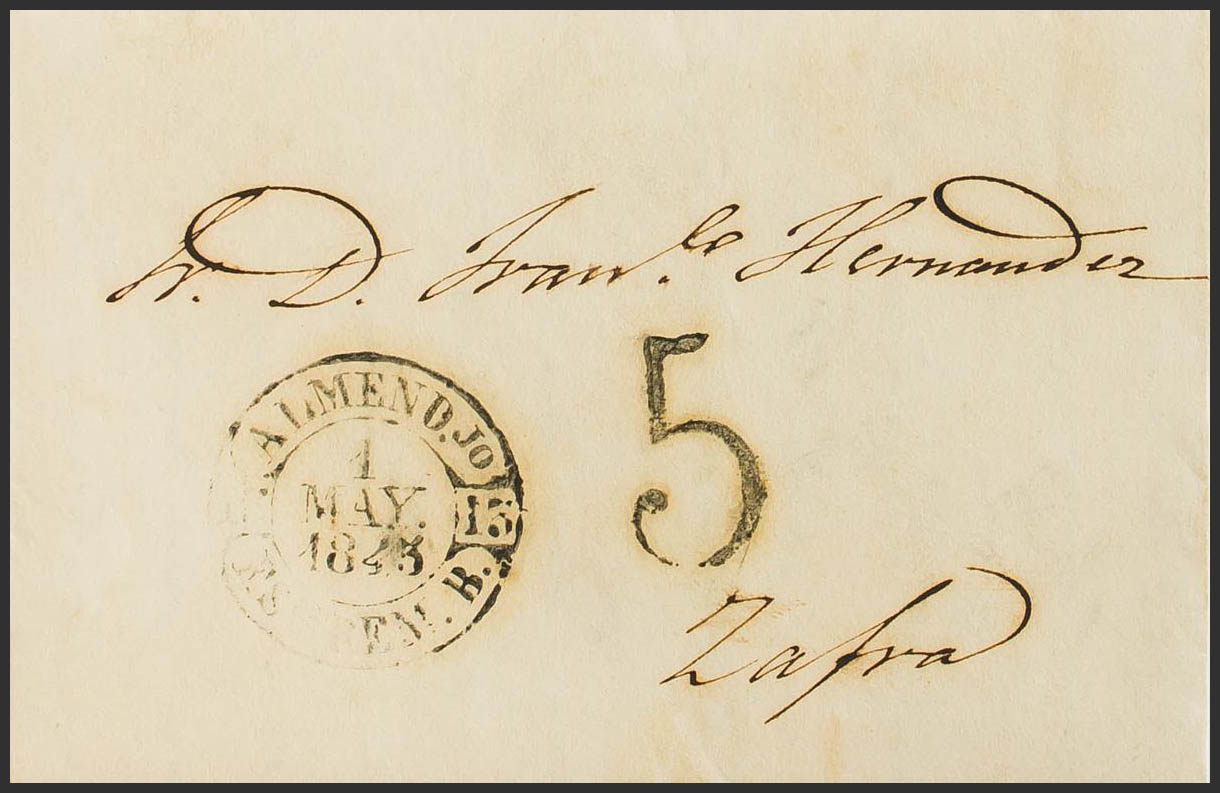 Sr. D. Franco. Hernandez
ALMEND.JO
1
MAY.
1843
13
EXTREM. B.
5
Zafra